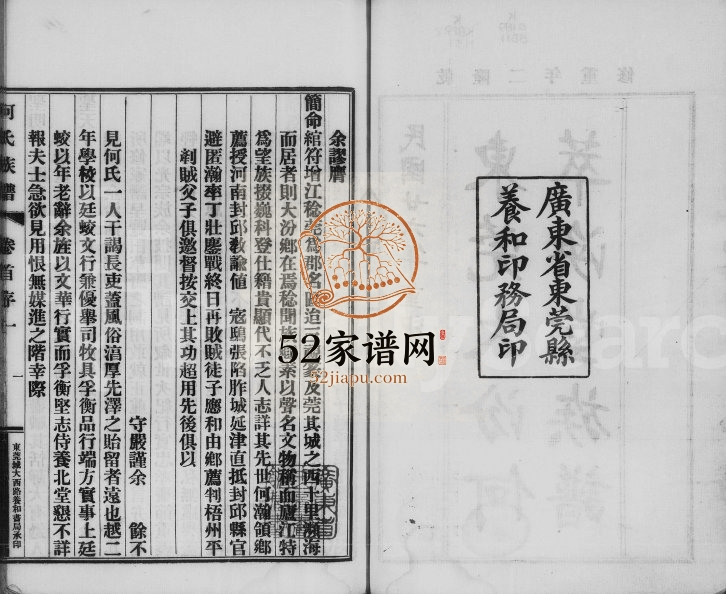 廣東省東莞縣
養和印務局印
余謬膺
簡命綰符增江稔莞為郡名區治三及莞其城之西十里瀕海
而居者則大汾鄉在焉稔聞族素以聲名文物稱而廬江特
為望族掇巍科登仕籍貴顯代不乏人志詳其先世何瀚領鄉
薦授河南封邱教諭值 寇鴟張陷胙城延津直抵封邱縣官
避匿瀚率丁壯鏖戰終日再敗賊徒子應和由鄉薦判梧州平
剢賊父子俱邀督按交上其功超用先後俱以
守嚴謹余 餘不
見何氏一人干謁長吏蓋風俗湻厚先澤之貽留者遠也越二
年學校以廷蛟文行兼優舉司牧具孚衡品行端方實事上廷
蛟以年老辭余旌以文華行實而孚衡堅志侍養北堂懇不詳
報夫士急欲見用恨無媒進之階幸際
何氏族譜
卷首序一
一
東莞城大西路養和書局承印
52家谱网
52jiapu.com
廣東省